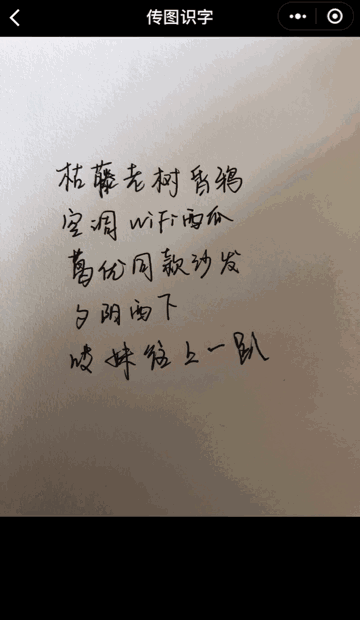 传图识字
枯藤老树昏鸦
空调WiFi西瓜
葛优同款沙发
夕阴西下
妹往上一趴